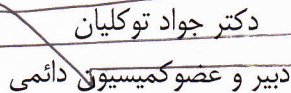 دکتر جواد توکلیان
دبیر و عضوکمیسیون دائمی